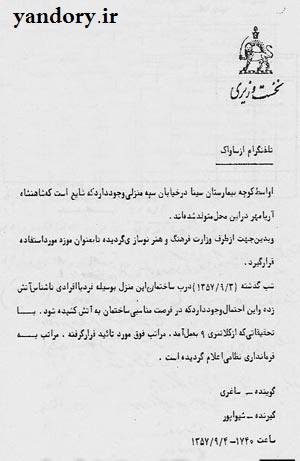 yandory.ir
نخست وزیری
تلفنگرام از ساواک
اواسط کوچه بیمارستان سینا درخیابان سپه منزلی وجود دارد که شایع است که شاهنشاه
آریامهر در این محل متولد شده اند.
وبدین جهت از طرف وزارت فرهنگ و هنر نوسازی گردیده تا بعنوان موزه مورد استفاده
قرار گیرد.
شب گذشته (۱۳۵۷/۶/۳) درب ساختمان این منزل بوسیله فرد یا افرادی ناشناس آتش
زده و این احتمال وجود دارد که در فرصت مناسبی ساختمان به آتش کشیده شود. بـــا
تحقیقاتی که از کلانتری ۹ بعمل آمد، مراتب فوق مورد تائید قرار گرفته. مراتب بـــه
فرمانداری نظامی اعلام گردیده است.
گوینده - ساغری
گیرنده - شیواپور
ساعت ۱۷۴۰-۱۳۵۷/۶/۴